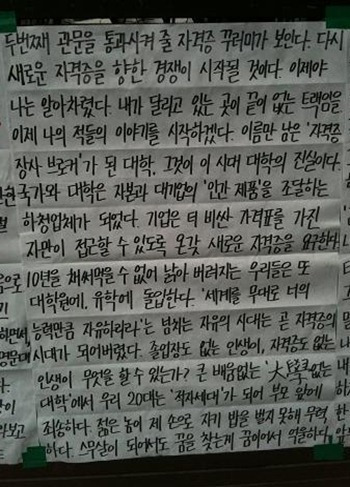 두번째 관문을 통과시켜 줄 자격증 꾸러미가 보인다. 다시
새로운 자격증을 향한 경쟁이 시작될 것이다. 이제야
나는 알아차렸다. 내가 달리고 있는 곳이 끝이 없는 트랙임을
이제 나의 적들의 이야기를 시작하겠다. 이름만 남은 '자격증
장사 브로커'가 된 대학. 그것이 이 시대 대학의 진실이다.
국가와 대학은 자본과 대기업의 '인간 제품'을 조달하는
하청업체가 되었다. 기업은 더 비싼 자격표를 가진
자만이 접근할 수 있도록 온갖 새로운 자격증을 요구한다
10년을 채 써먹을 수 없어 낡아 버려지는 우리들은 또
대학원에, 유학에 돌입한다. '세계를 무대로 너의
능력만큼 자유하리라'는 넘치는 자유의 시대는 곧 자격증의
시대가 되어버렸다. 졸업장도 없는 인생이, 자격증도 없는
인생이 무엇을 할 수 있는가? 큰 배움없는 '大學없는
대학'에서 우리 20대는 '적자세대'가 되어 부모 앞에
죄송하다. 젊은 놈이 제 손으로 자기 밥을 벌지 못해 무력
하다. 스무살이 되어서도 꿈을 찾는게 꿈이어서 억울하다.